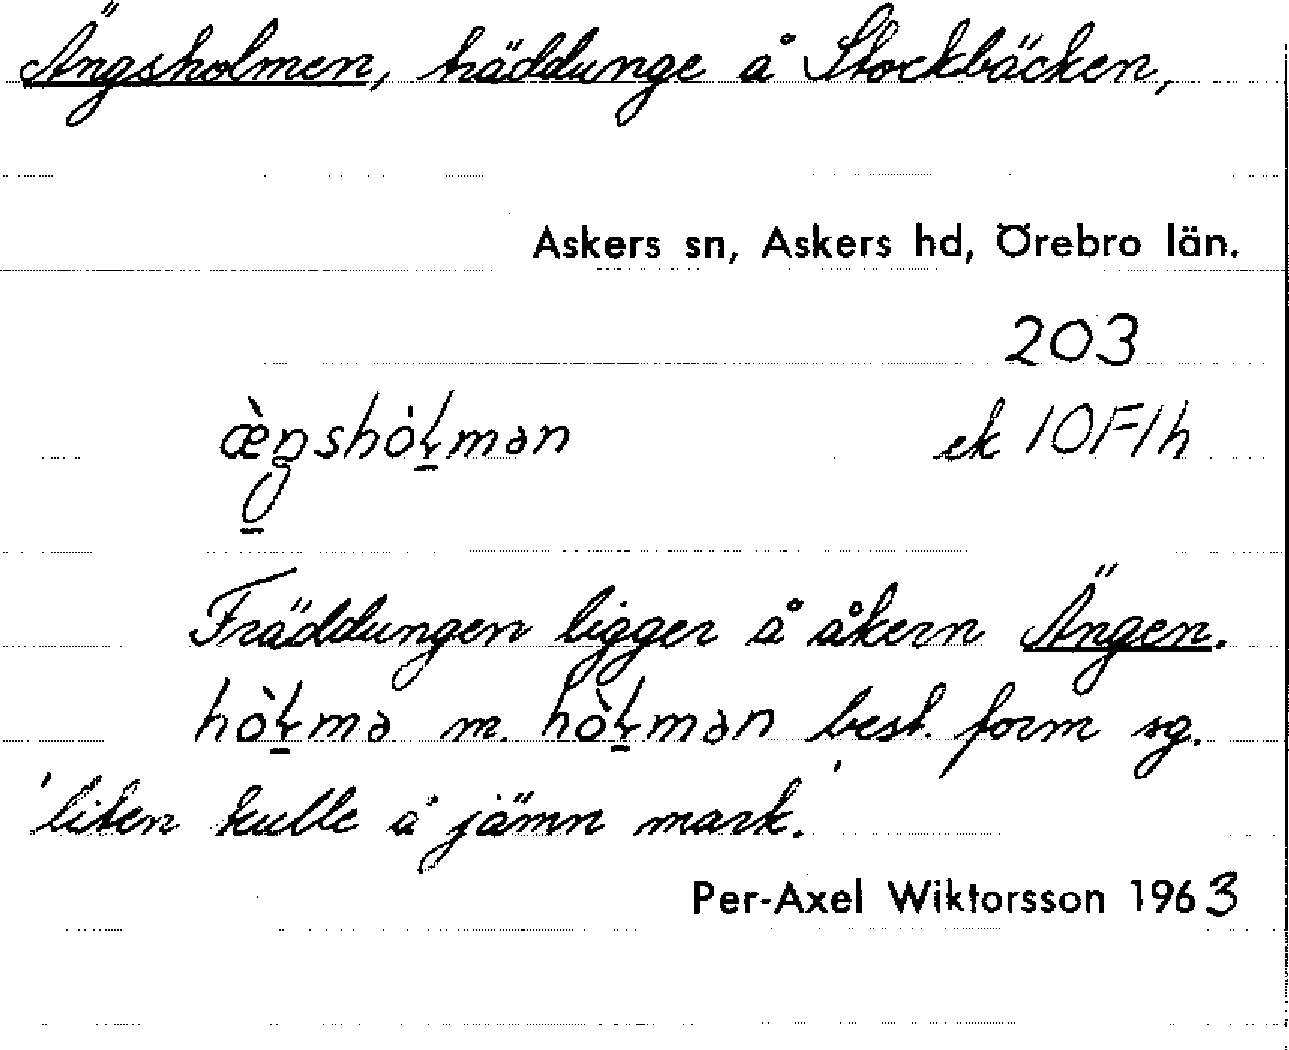 Ängsholmen, träddunge å Stockbäcken,
Askers sn, Askers hd, Örebro län.
203
æ̀ŋshò̍ɫ̠mən ek 10F1h
Träddungen ligger å åkern Ängen.
hòɫ̠mə m. hòɫ̠mən best. form sg.
'liten kulle å jämn mark.'
Per-Axel Wiktorsson 1963